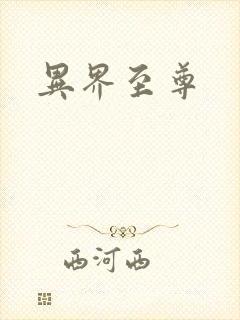 異界至尊
西河西